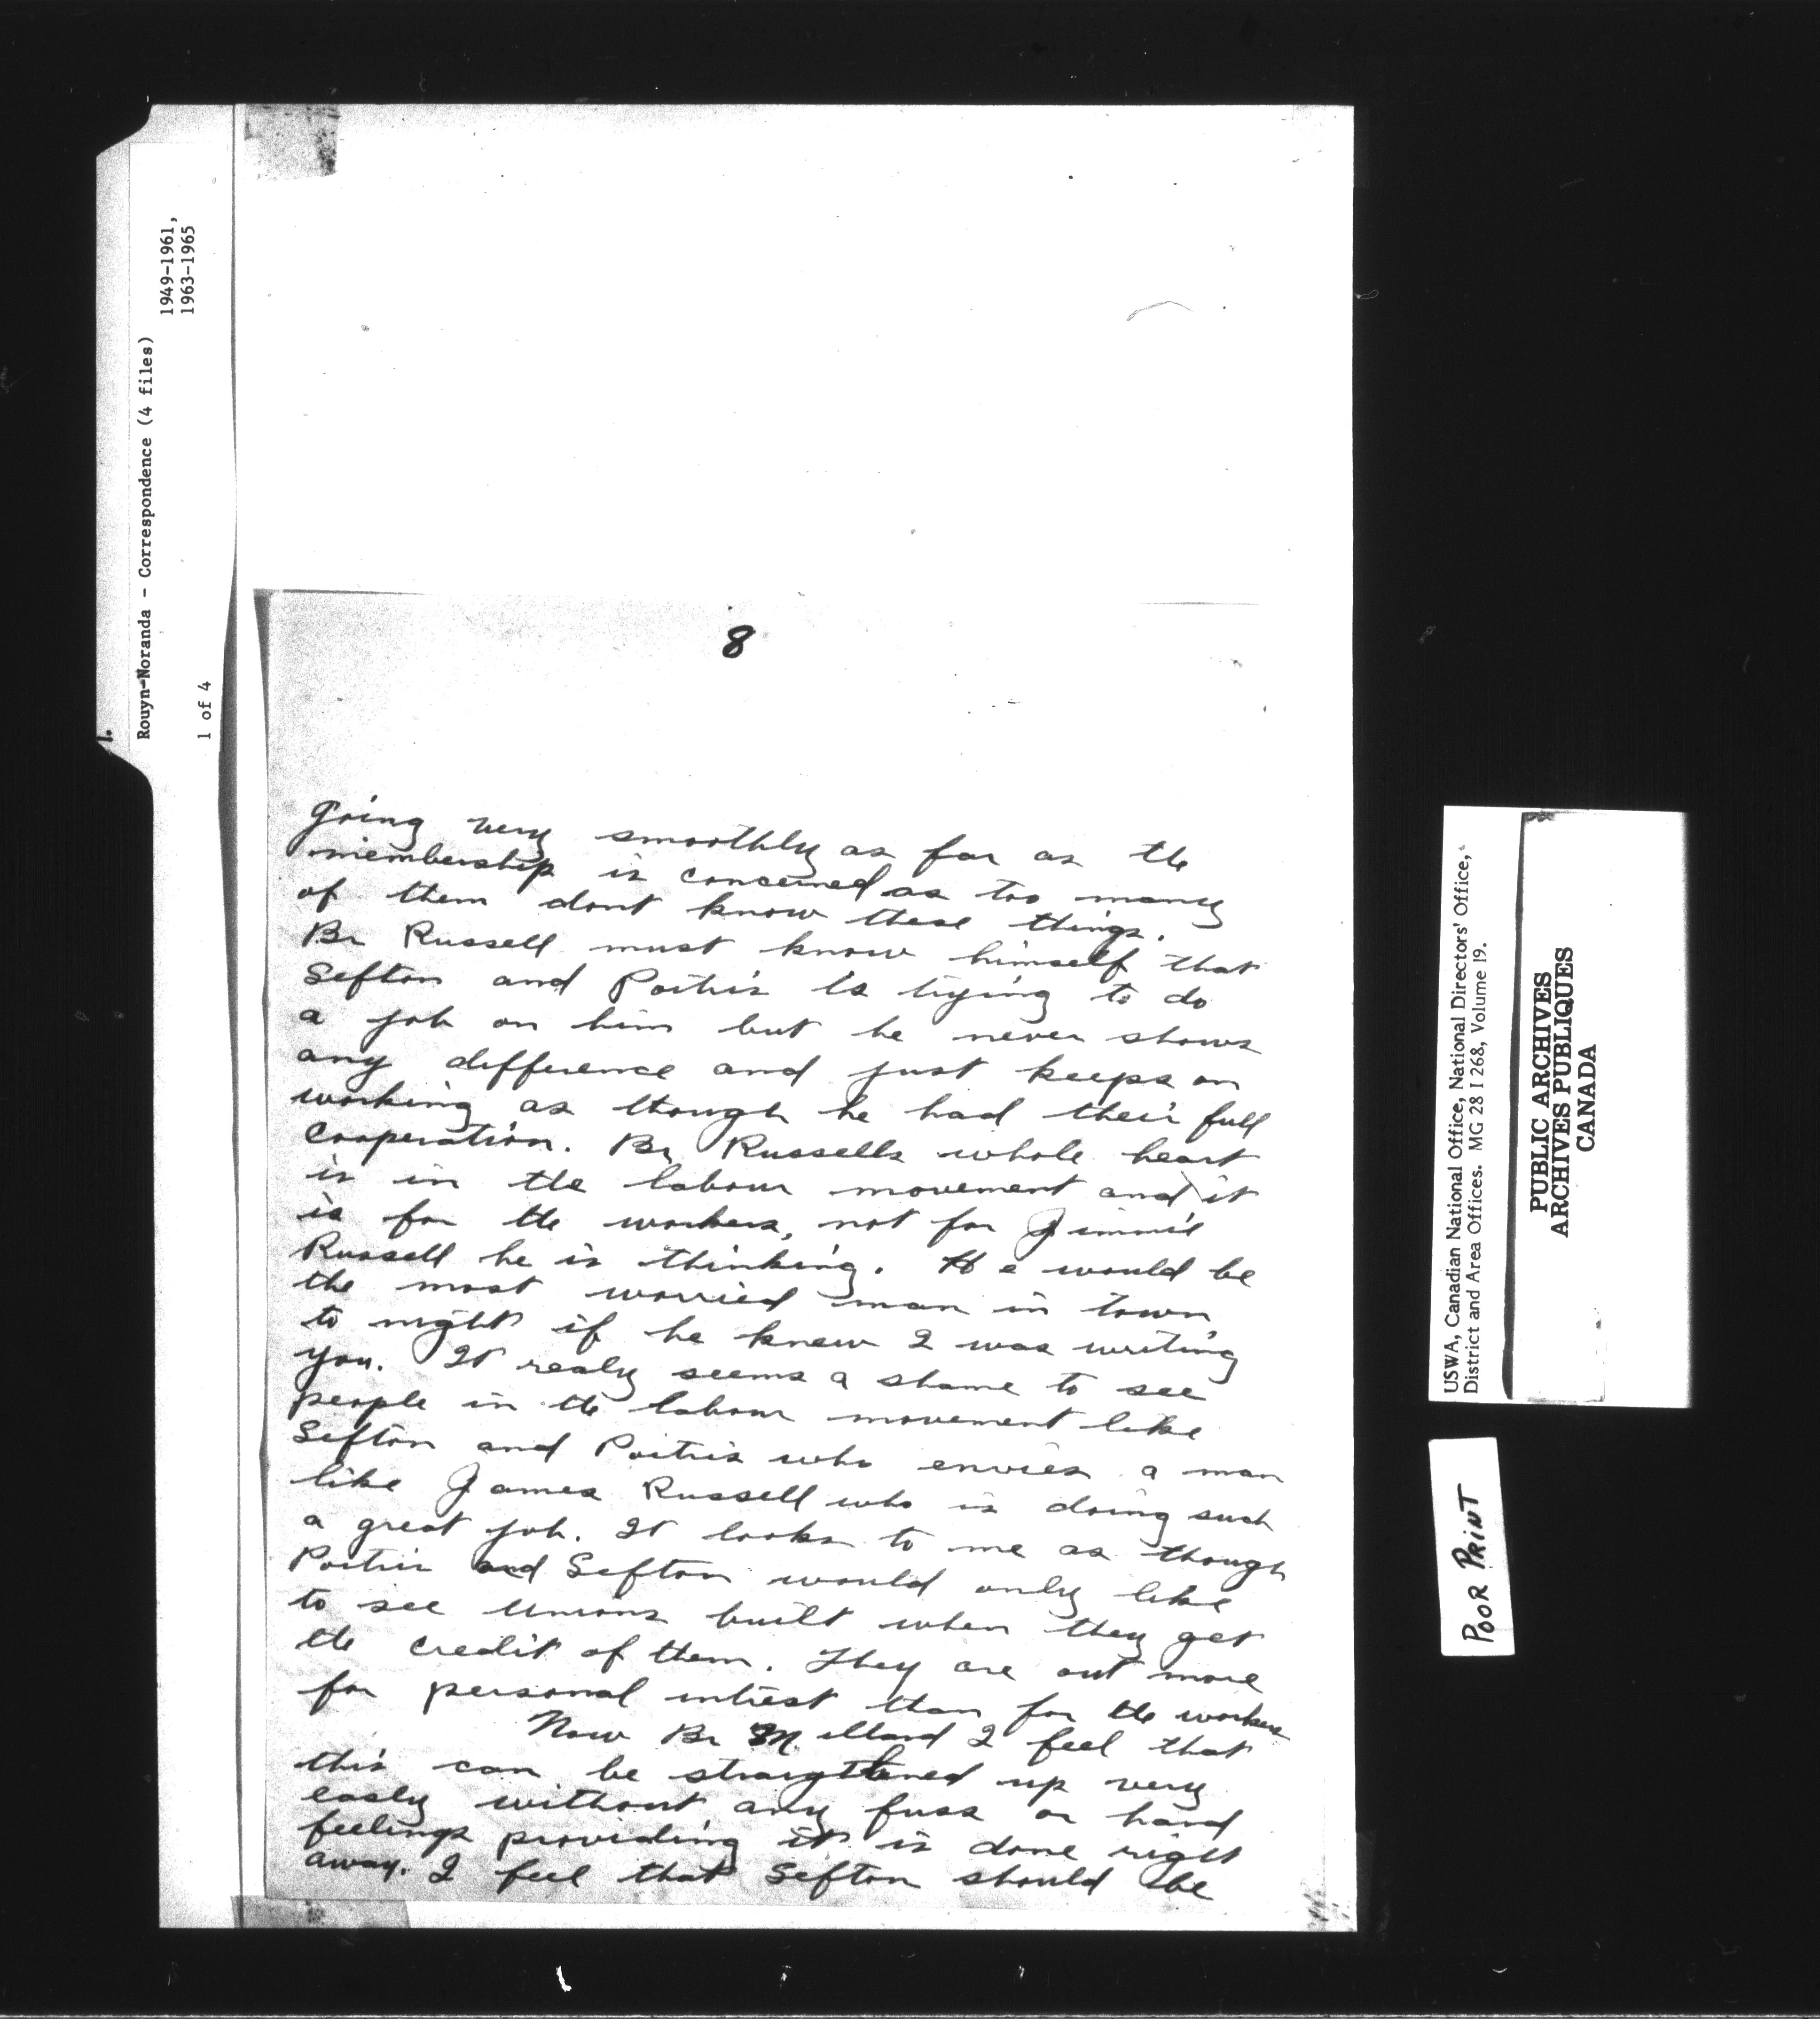 1.
Rouyn-Noranda - Correspondence (4 files)
1949-1961,
1963-1965
1 of 4
8
going very smoothly as far as the
membership is concerned as too many
of them dont know these things.
Br Russell must know himself that
Sefton and Poitris is trying to do
a job on him but he never shows
any difference and just keeps on
working as though he had their full
cooperation. Br Russells whole heart
is in the labour movement and it
is for the workers, not for Jimmie
Russell he is thinking. He would be
the most worried man in town
to night if he knew I was writing
you. It realy seems a shame to see
people in the labour movement like
Sefton and Poitris who envies a man
like James Russell who is doing such
a great job. It looks to me as though
Poitris and Sefton would only like
to see unions built when they get
the credit of them. They are out more
for personal intrest than for the workers
Now Br Millard I feel that
this can be straigthened up very
easly without any fuss or hard
feelings providing it is done right
away. I feel that Sefton should be
USWA, Canadian National Office, National Directors' Office,
District and Area Offices. MG 28 I 268, Volume 19.
PUBLIC ARCHIVES
ARCHIVES PUBLIQUES
CANADA
POOR PRINT